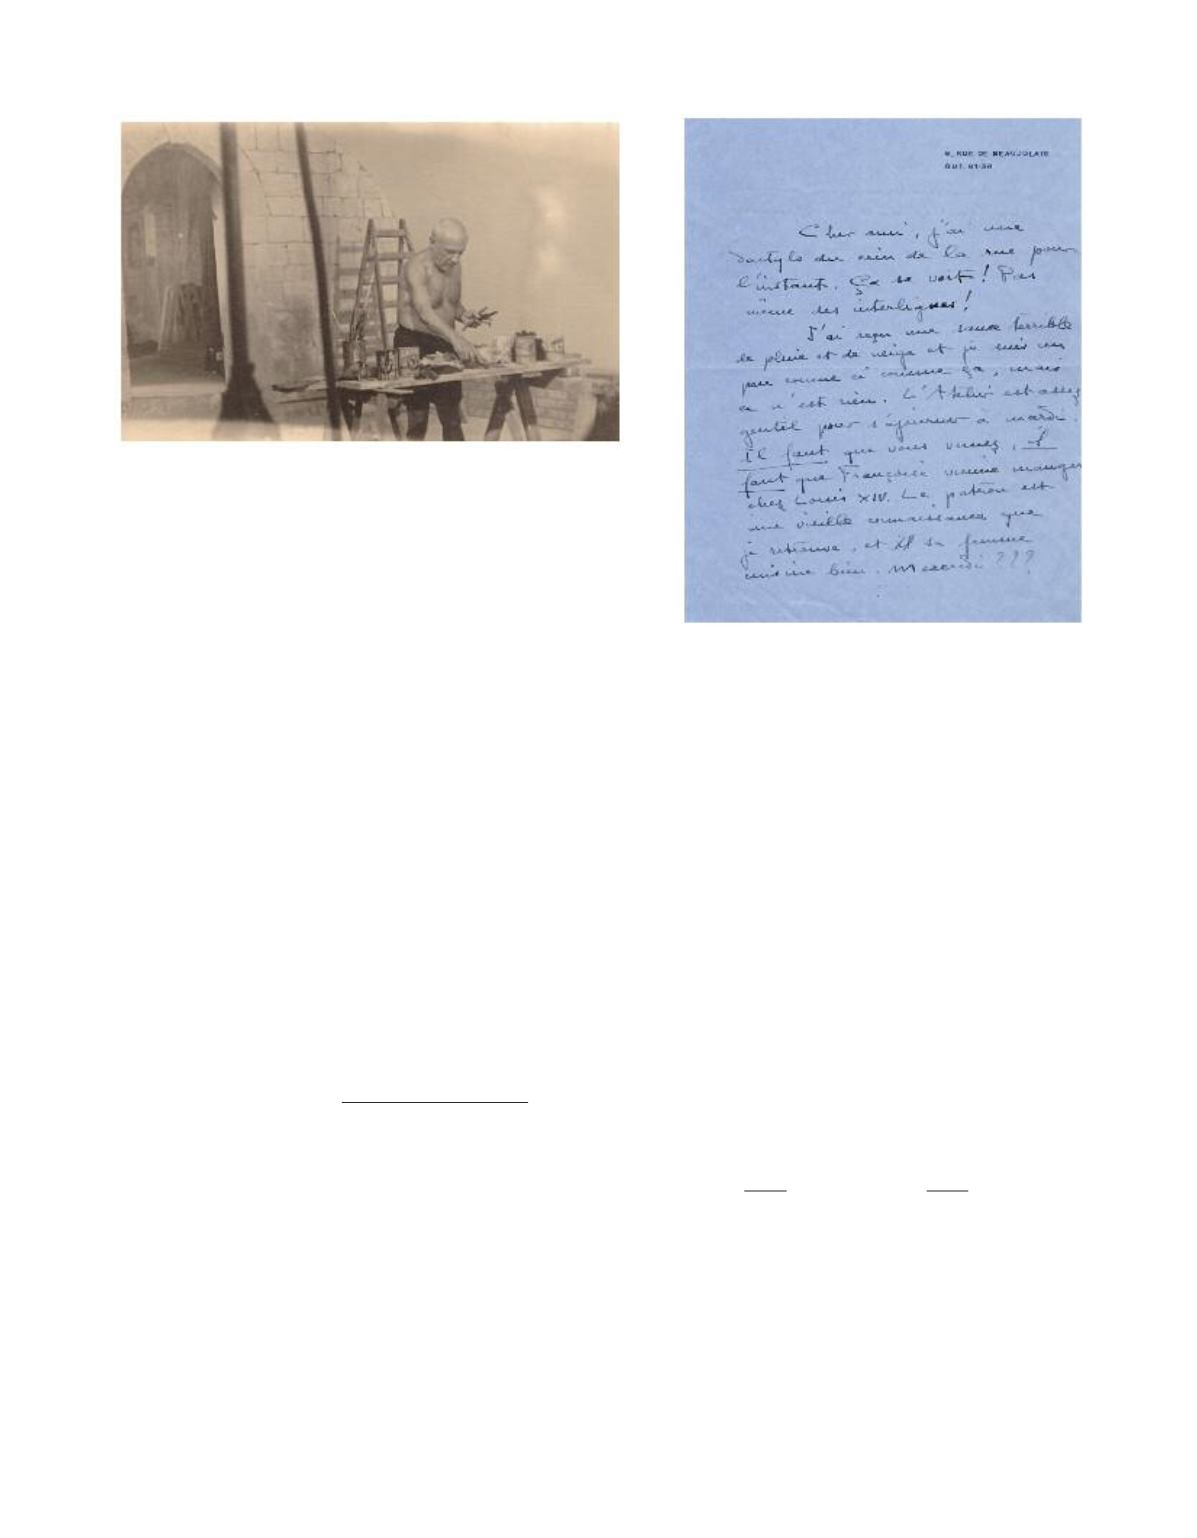 9, RUE DE BEAUJOLAIS
GUT. 61-36
Cher ami, j'ai une
dactylo du coin de la rue pour
l'instant. Ça se voit ! Pas
même des interlignes !
J'ai reçu une sauce terrible
de pluie et de neige et je suis un
peu comme ci comme ça, mais
ce n'est rien. L'Atelier est assez
gentil pour s'ajourner à mardi.
Il faut que vous veniez, il
faut que Françoise vienne manger
chez Louis XIV. Le patron est
une vieille connaissance que
je retrouve, et sa femme
cuisine bien. Mercredi ???